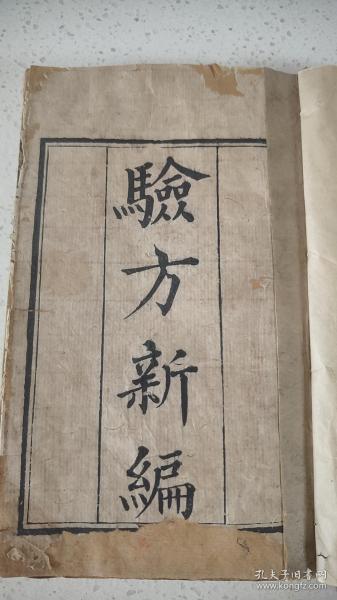 驗方新編
孔夫子旧书网
www.kongfz.com